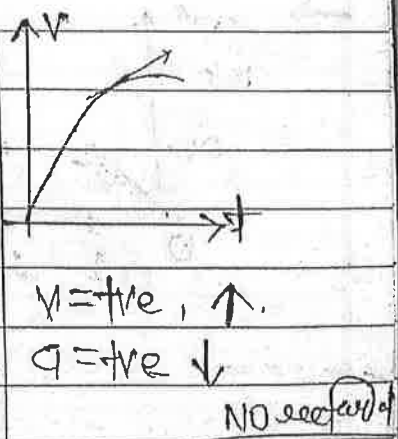 V
t
V=+ve, ↑.
a=+ve ↓
NO